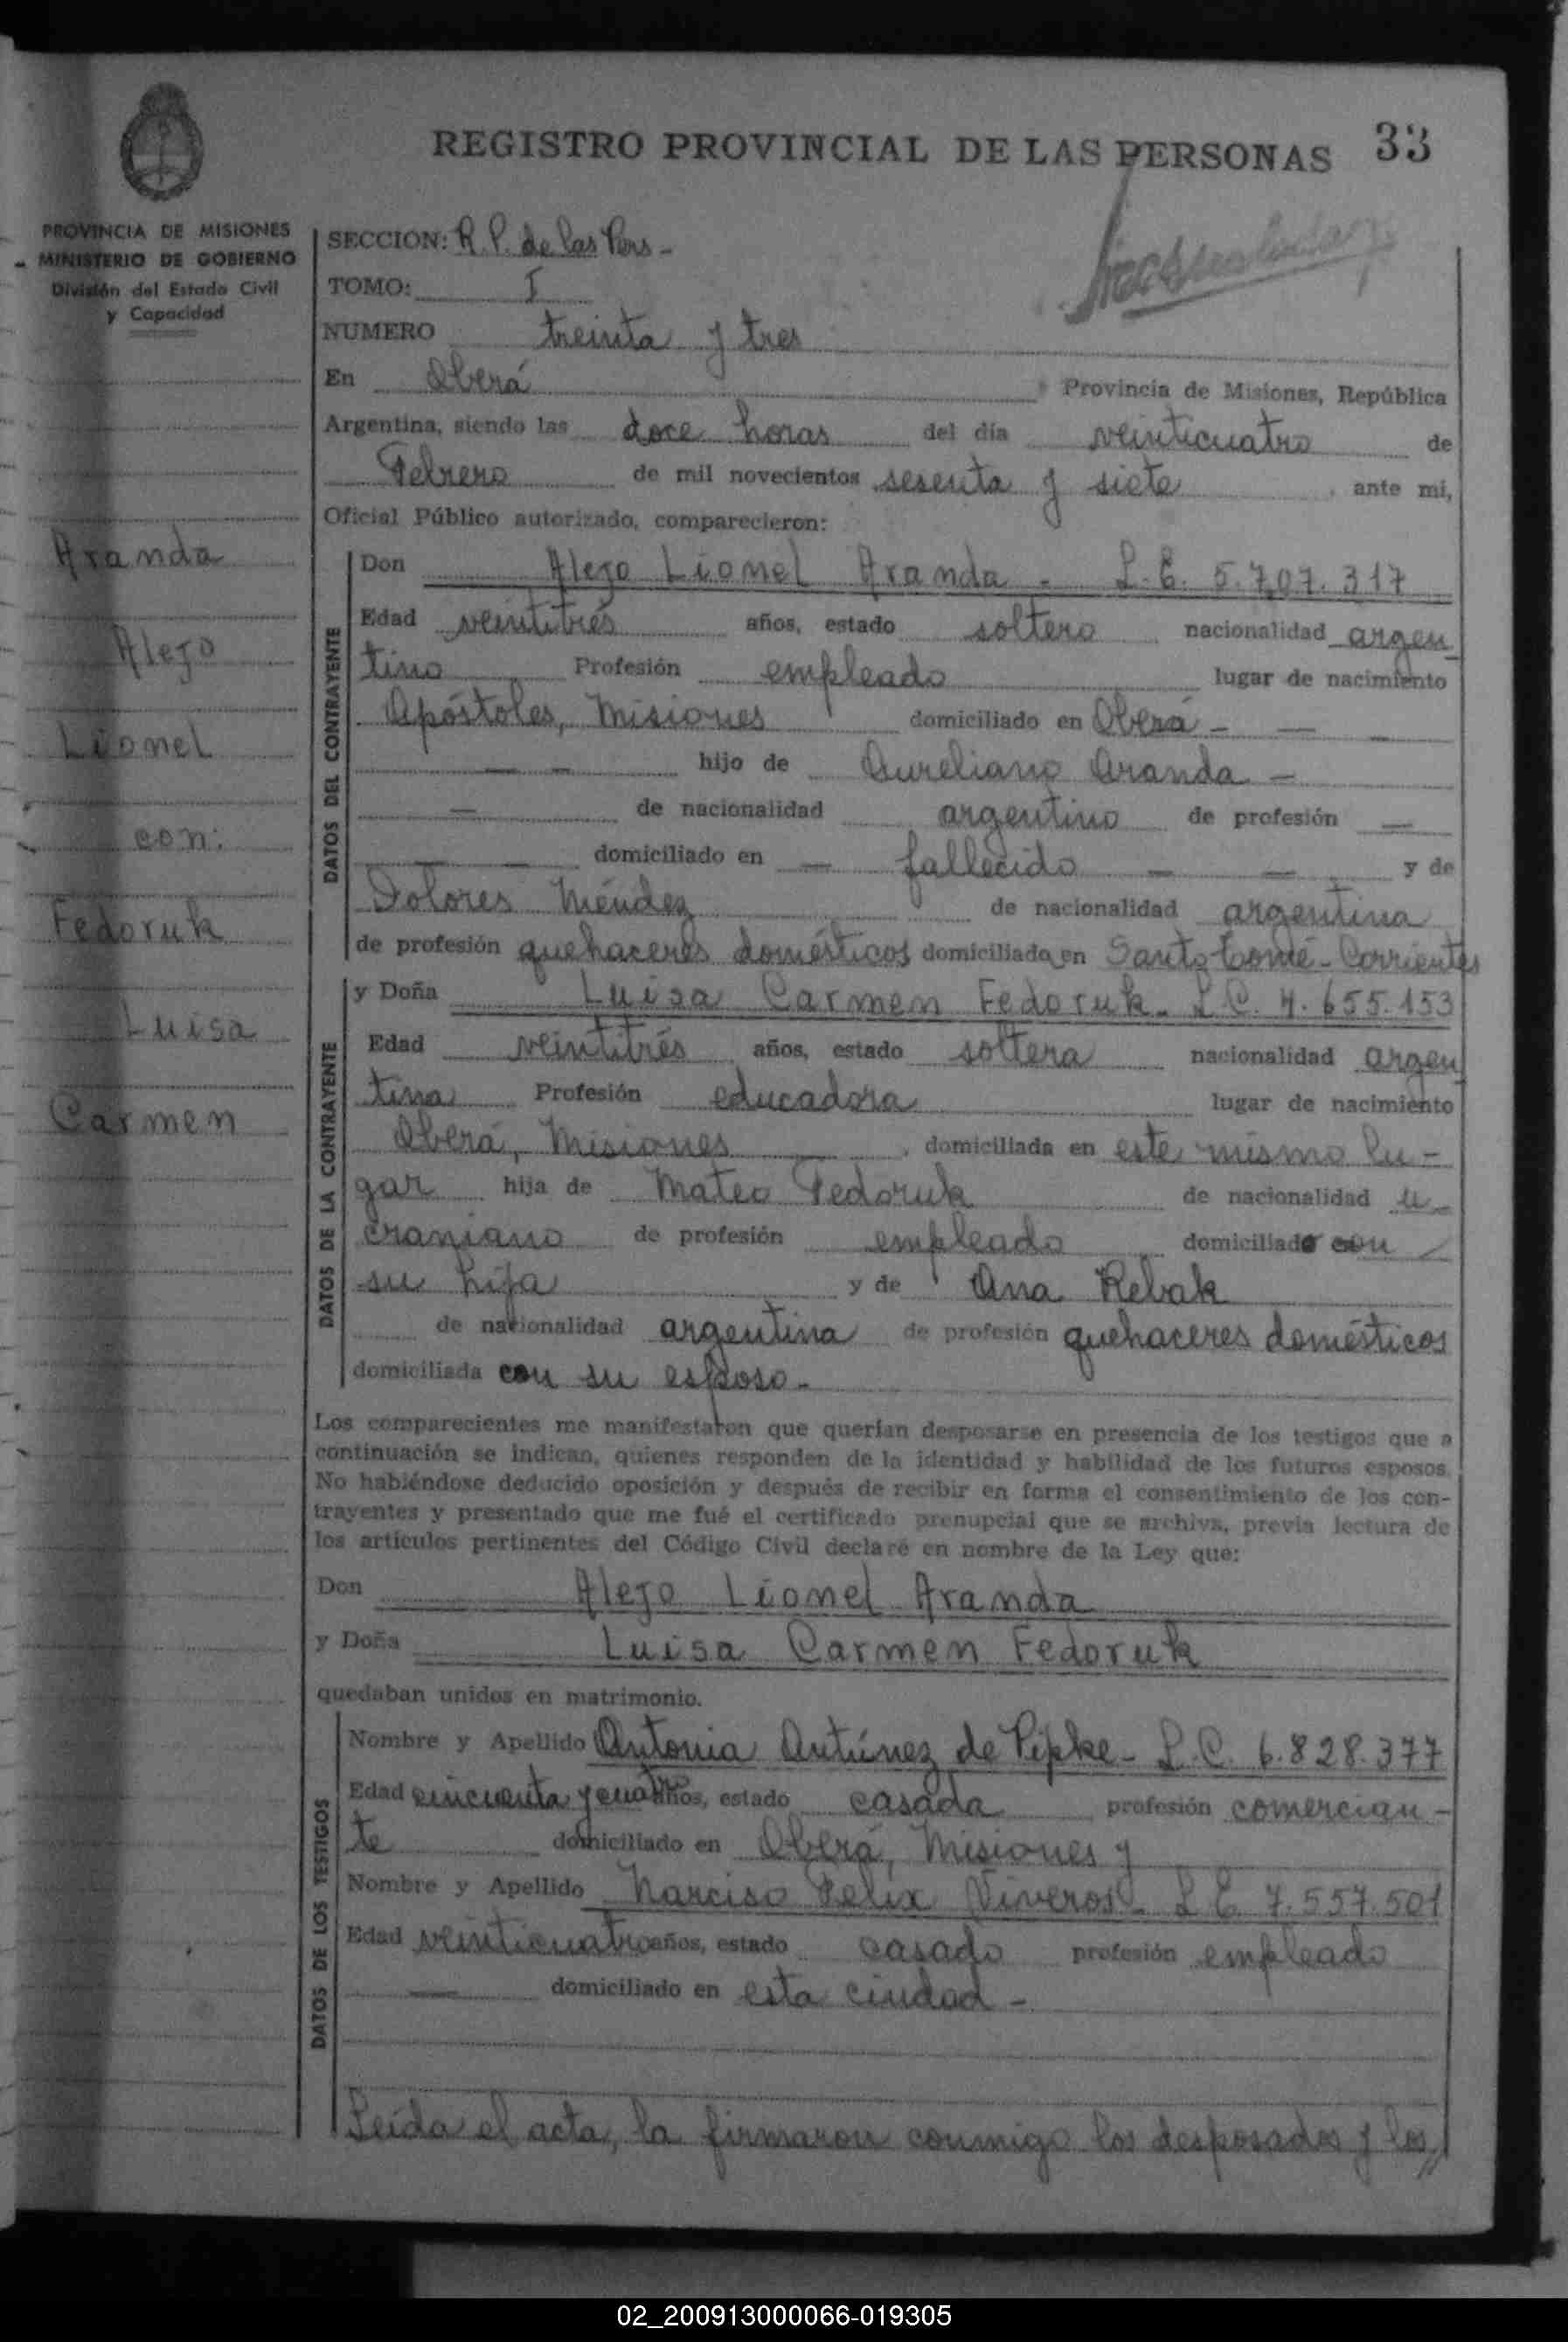 REGISTRO PROVINCIAL DE LAS PERSONAS 33
PROVINCIA DE MISIONES
MINISTERIO DE GOBIERNO
División del Estado Civil
y Capacidad
Aranda
Alejo
Lionel
con:
Fedoruk
Luisa
Carmen
SECCION: R. P. de las Pers -
TOMO: I
NUMERO treinta y tres
En Oberá Provincia de Misiones, República
Argentina, siendo las doce horas del día veinticuatro de
Febrero de mil novecientos sesenta y siete, ante mí,
Oficial Público autorizado, comparecieron:
DATOS DEL CONTRAYENTE
Don Alejo Lionel Aranda - L. E. 5.707.317
Edad veintitrés años, estado soltero nacionalidad argen
tino Profesión empleado lugar de nacimiento
Apóstoles, Misiones domiciliado en Oberá - — —
— — hijo de Aureliano Aranda —
— de nacionalidad argentino de profesión —
— — domiciliado en — fallecido — — y de
Dolores Méndez de nacionalidad argentina
de profesión quehaceres domésticos domiciliada en Santo Tomé - Corrientes
DATOS DE LA CONTRAYENTE
y Doña Luisa Carmen Fedoruk - L C. 4.655.153
Edad veintitrés años, estado soltera nacionalidad argen
tina Profesión educadora lugar de nacimiento
Oberá, Misiones, domiciliada en este mismo lu -
gar hija de Mateo Fedoruk de nacionalidad u -
craniano de profesión empleado domiciliado con
su hija y de Ana Rebak
de nacionalidad argentina de profesión quehaceres domésticos
domiciliada con su esposo -
Los comparecientes me manifestaron que querían desposarse en presencia de los testigos que a
continuación se indican, quienes responden de la identidad y habilidad de los futuros esposos.
No habiéndose deducido oposición y después de recibir en forma el consentimiento de los con-
trayentes y presentado que me fué el certificado prenupcial que se archiva, previa lectura de
los artículos pertinentes del Código Civil declaré en nombre de la Ley que:
Don Alejo Lionel Aranda
y Doña Luisa Carmen Fedoruk
quedaban unidos en matrimonio.
DATOS DE LOS TESTIGOS
Nombre y Apellido Antonia Antúnez de Pipke - L. C. 6.828.377
Edad cincuenta y cuatro años, estado casada profesión comercian -
te domiciliado en Oberá, Misiones y
Nombre y Apellido Narciso Félix Viveros - L E 7.557.501
Edad veinticuatro años, estado casado profesión empleado
— domiciliado en esta ciudad -
Leída el acta, la firmaron conmigo los desposados y los //
02_200913000066-019305